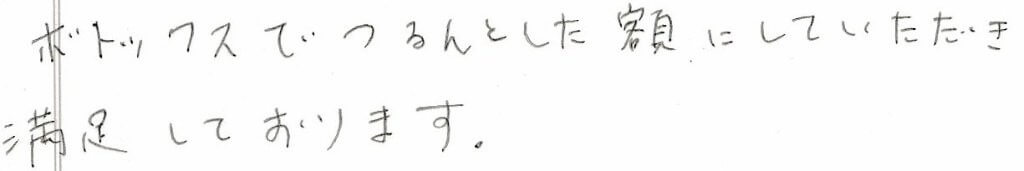 ボトックスでつるんとした額にしていただき
満足しております。